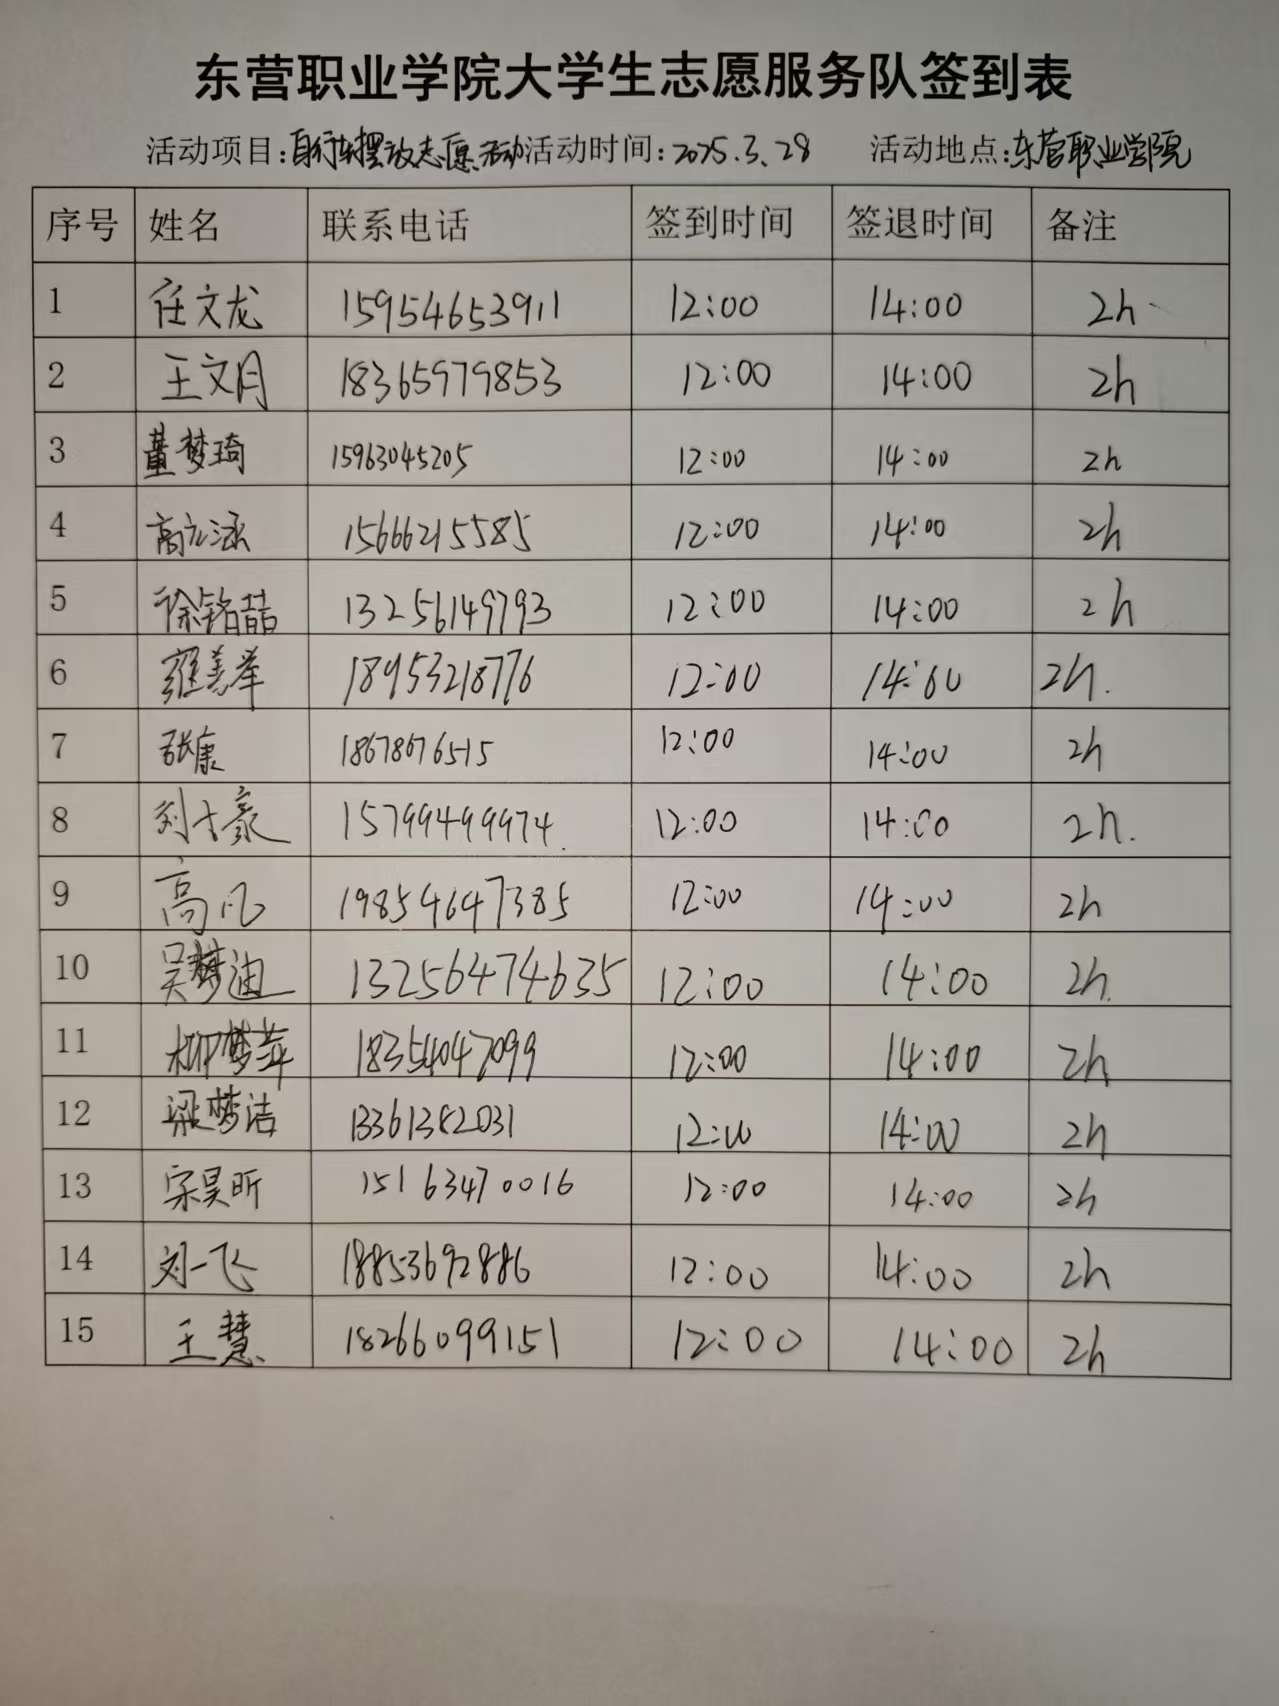 东营职业学院大学生志愿服务队签到表
活动项目:自行车摆放志愿活动 活动时间:2025.3.28 活动地点:东营职业学院
序号 姓名 联系电话 签到时间 签退时间 备注
1 任文龙 15954653911 12:00 14:00 2h
2 王文月 18365979853 12:00 14:00 2h
3 董梦琦 15963045205 12:00 14:00 2h
4 高元涵 15666215585 12:00 14:00 2h
5 徐铭喆 13256149793 12:00 14:00 2h
6 18953218776 12:00 14:00 2h.
7 张康 18678676515 12:00 14:00 2h
8 刘士豪 15799499974. 12:00 14:00 2h.
9 高凡 19854647385 12:00 14:00 2h
10 吴梦迪 13256474635 12:00 14:00 2h.
11 柳梦萍 18354047099 12:00 14:00 2h
12 梁梦洁 13361382031 12:00 14:00 2h
13 宋昊昕 15163470016 12:00 14:00 2h
14 刘一飞 18853692886 12:00 14:00 2h
15 王慧 18266099151 12:00 14:00 2h